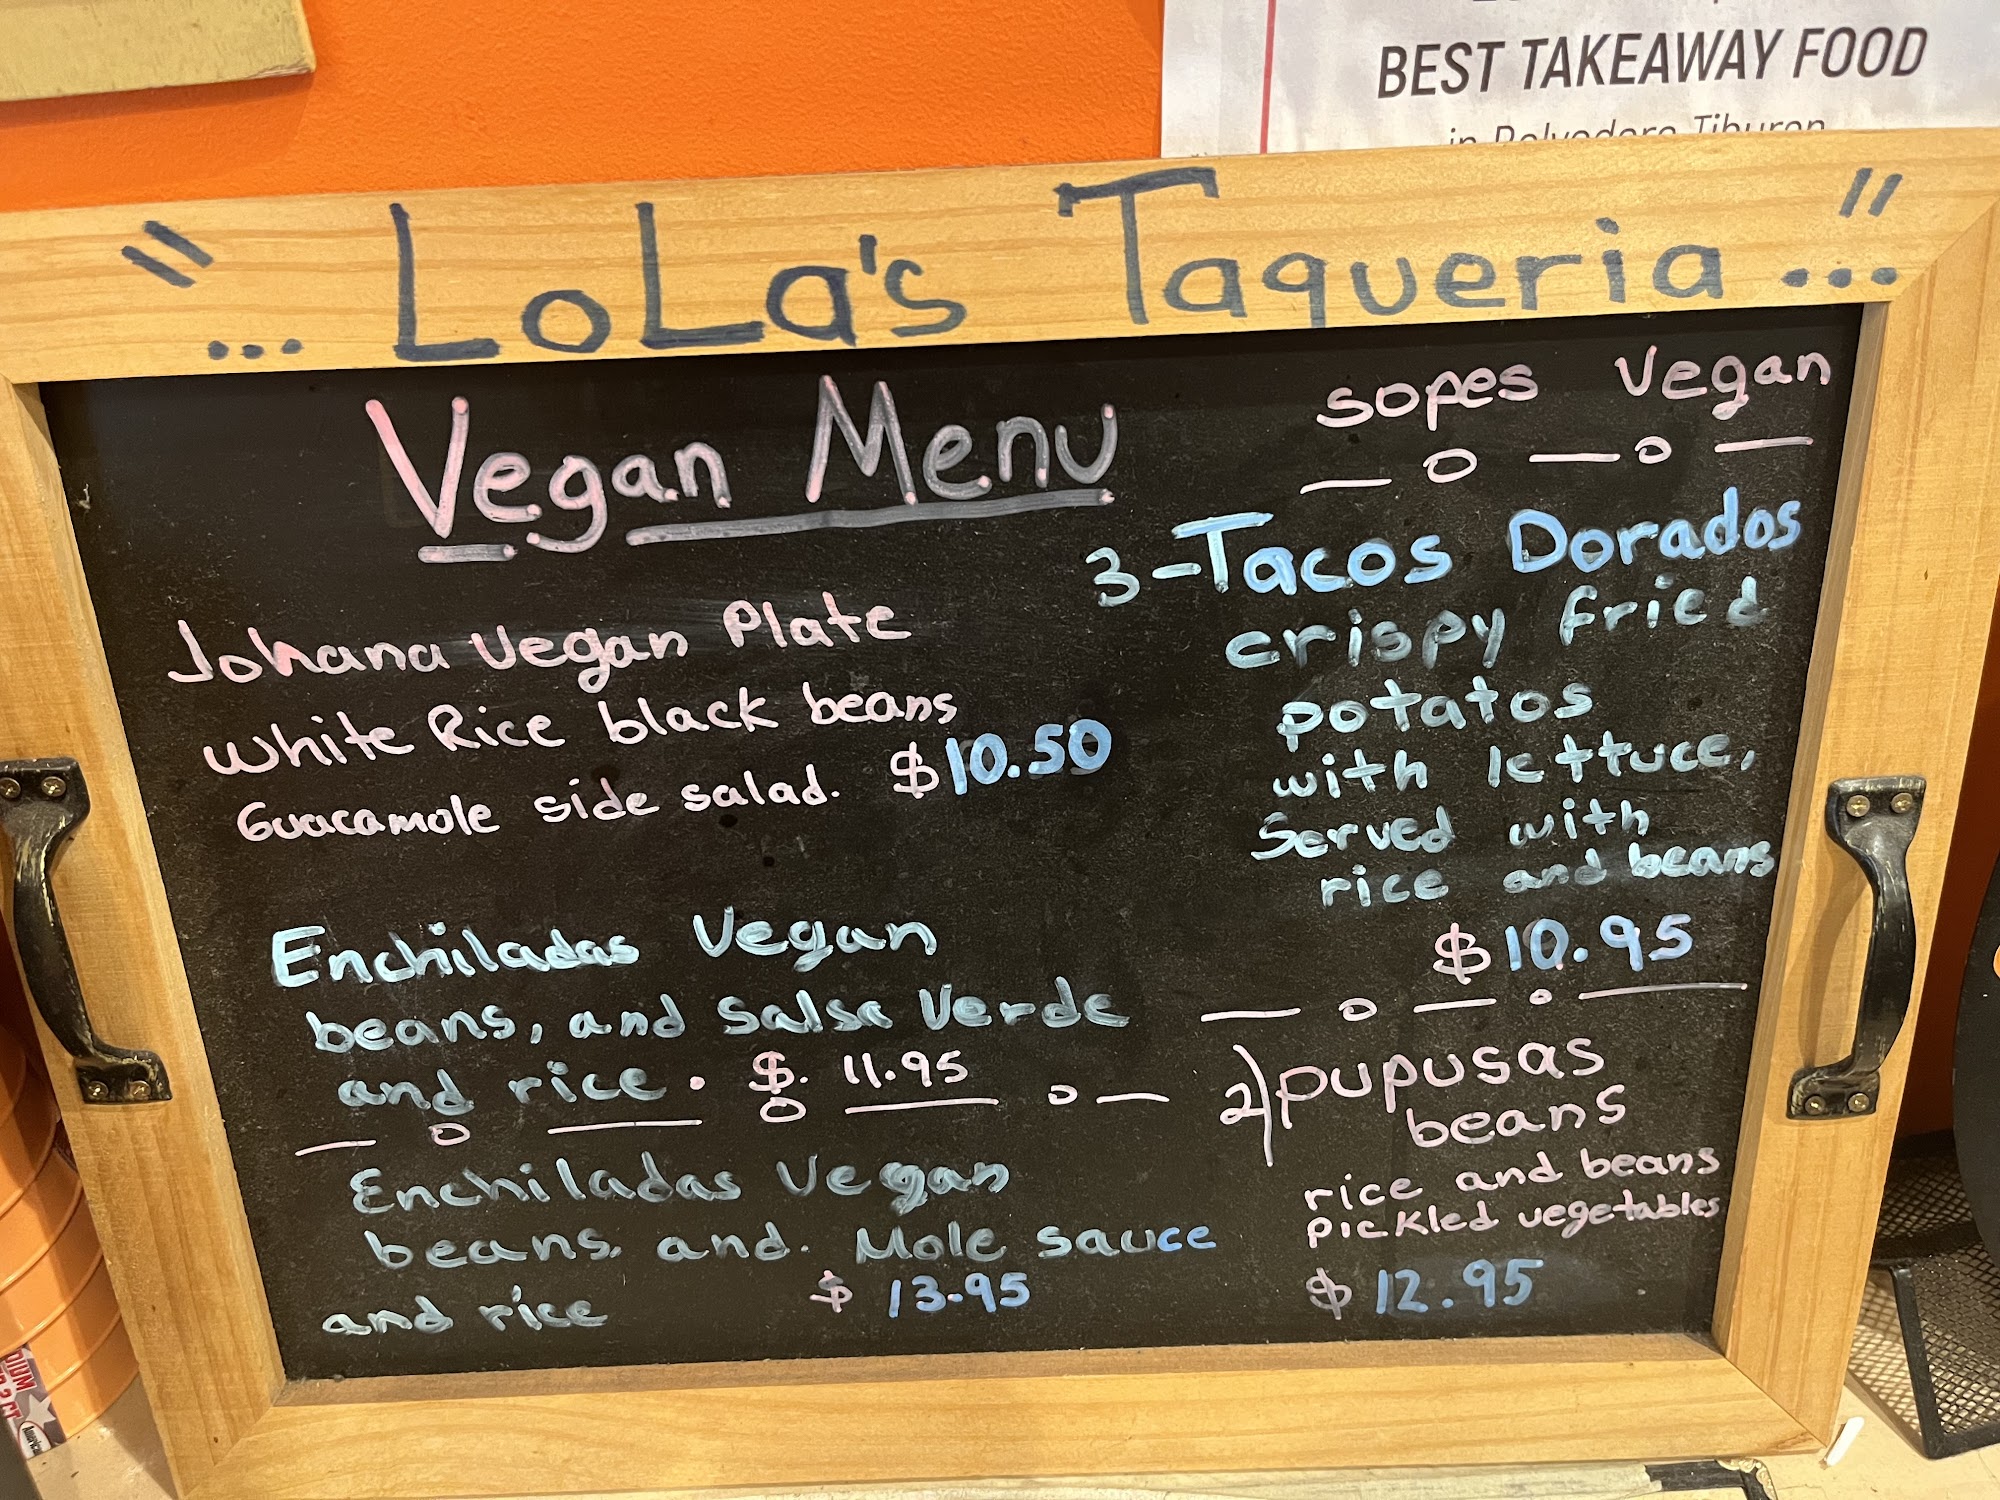 BEST TAKEAWAY FOOD
in Belvedere Tiburon
"... LoLa's Taqueria ..."
Vegan Menu
Johana Vegan Plate
White Rice black beans
Guacamole side salad. $10.50
Enchiladas Vegan
beans, and Salsa Verde
and rice. $. 11.95
Enchiladas Vegan
beans. and. Mole sauce
and rice $ 13.95
sopes Vegan
3-Tacos Dorados
crispy fried
potatos
with lettuce,
Served with
rice and beans
$10.95
2) pupusas
beans
rice and beans
pickled vegetables
$ 12.95